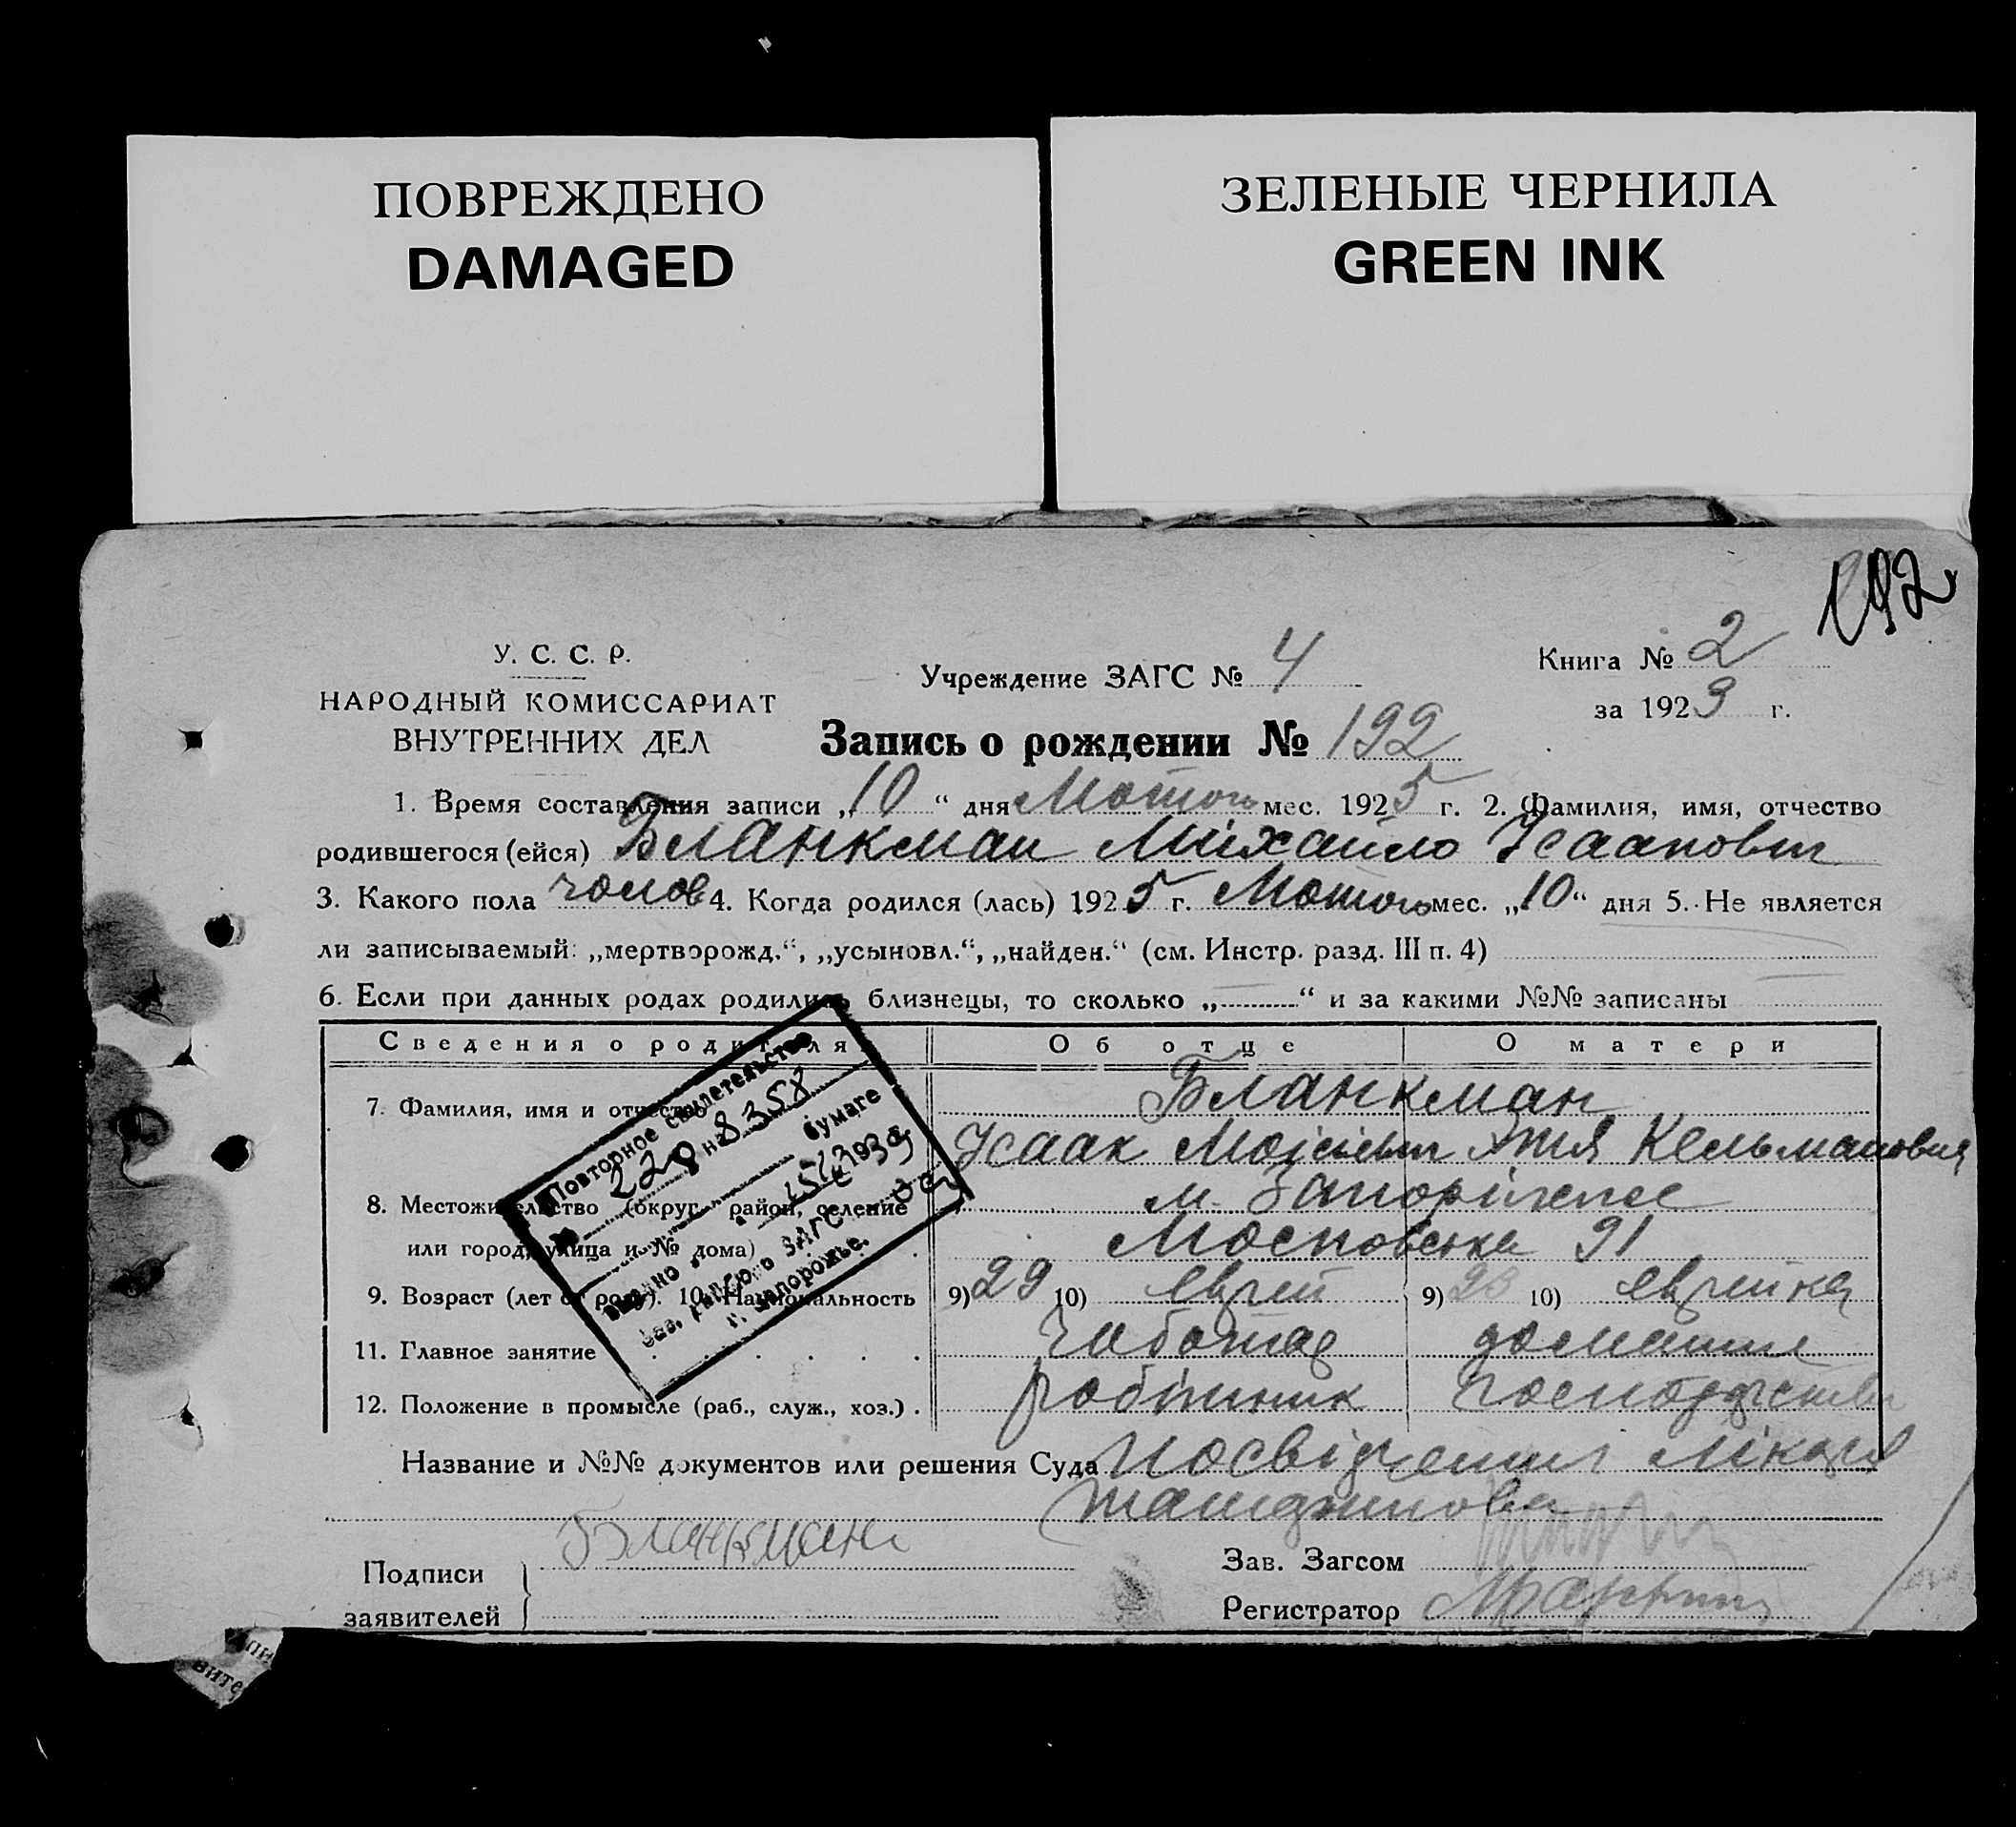 ПОВРЕЖДЕНО
DAMAGED
ЗЕЛЕНЫЕ ЧЕРНИЛА
GREEN INK
192
У. С. С. Р.
НАРОДНЫЙ КОМИССАРИАТ
ВНУТРЕННИХ ДЕЛ
Учреждение ЗАГС № 4
Книга № 2
за 1923 г.
Запись о рождении № 192
1. Время составления записи „10“ дня Лютого мес. 1925 г. 2. Фамилия, имя, отчество
родившегося (ейся) Бланкман Михайло Ісаакович
3. Какого пола чолов 4. Когда родился (лась) 1925 г. Лютого мес. „10“ дня 5. Не является
ли записываемый: „мертворожд.“, „усыновл.“, „найден.“ (см. Инстр. разд. III п. 4)
6. Если при данных родах родились близнецы, то сколько „ “ и за какими №№ записаны
Сведения о родителях
Об отце
О матери
7. Фамилия, имя и отчество
Бланкман
Ісаак Мойсієвич Этя Кельмановна
8. Местожительство (округ, район, селение
м. Запоріжжє
или город, улица и № дома)
Московська 91
9. Возраст (лет от роду). 10. Национальность 9) 29 10) еврей 9) 23 10) еврейка
11. Главное занятие Чоботар домашнє
12. Положение в промысле (раб., служ., хоз.) . робітник господарство
Повторное свидетельство
220 на 8358
бумаге
1939
ЗАГС
г. Запорожье.
Название и №№ документов или решения Суда Посвідчення лікаря
Подписи
заявителей
Бланкман
Зав. Загсом
Регистратор